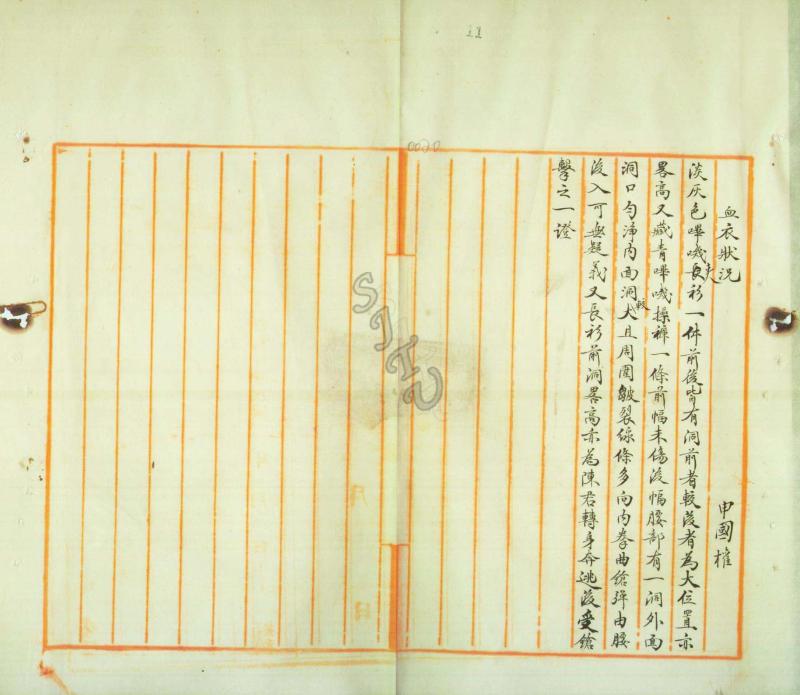 血衣狀況
申國權
淡灰色嗶嘰夾長衫一件前後皆有洞前者較後者為大位置亦
畧高又藏青嗶嘰操褲一條前幅未傷後幅腰部有一洞外面
洞口勻淨內面洞較大且周圍皺裂線條多向內拳曲鎗彈由腰
後入可無疑義又長衫前洞畧高亦為陳君轉身奔逃後受鎗
擊之一證
0020
SJTU
月
日